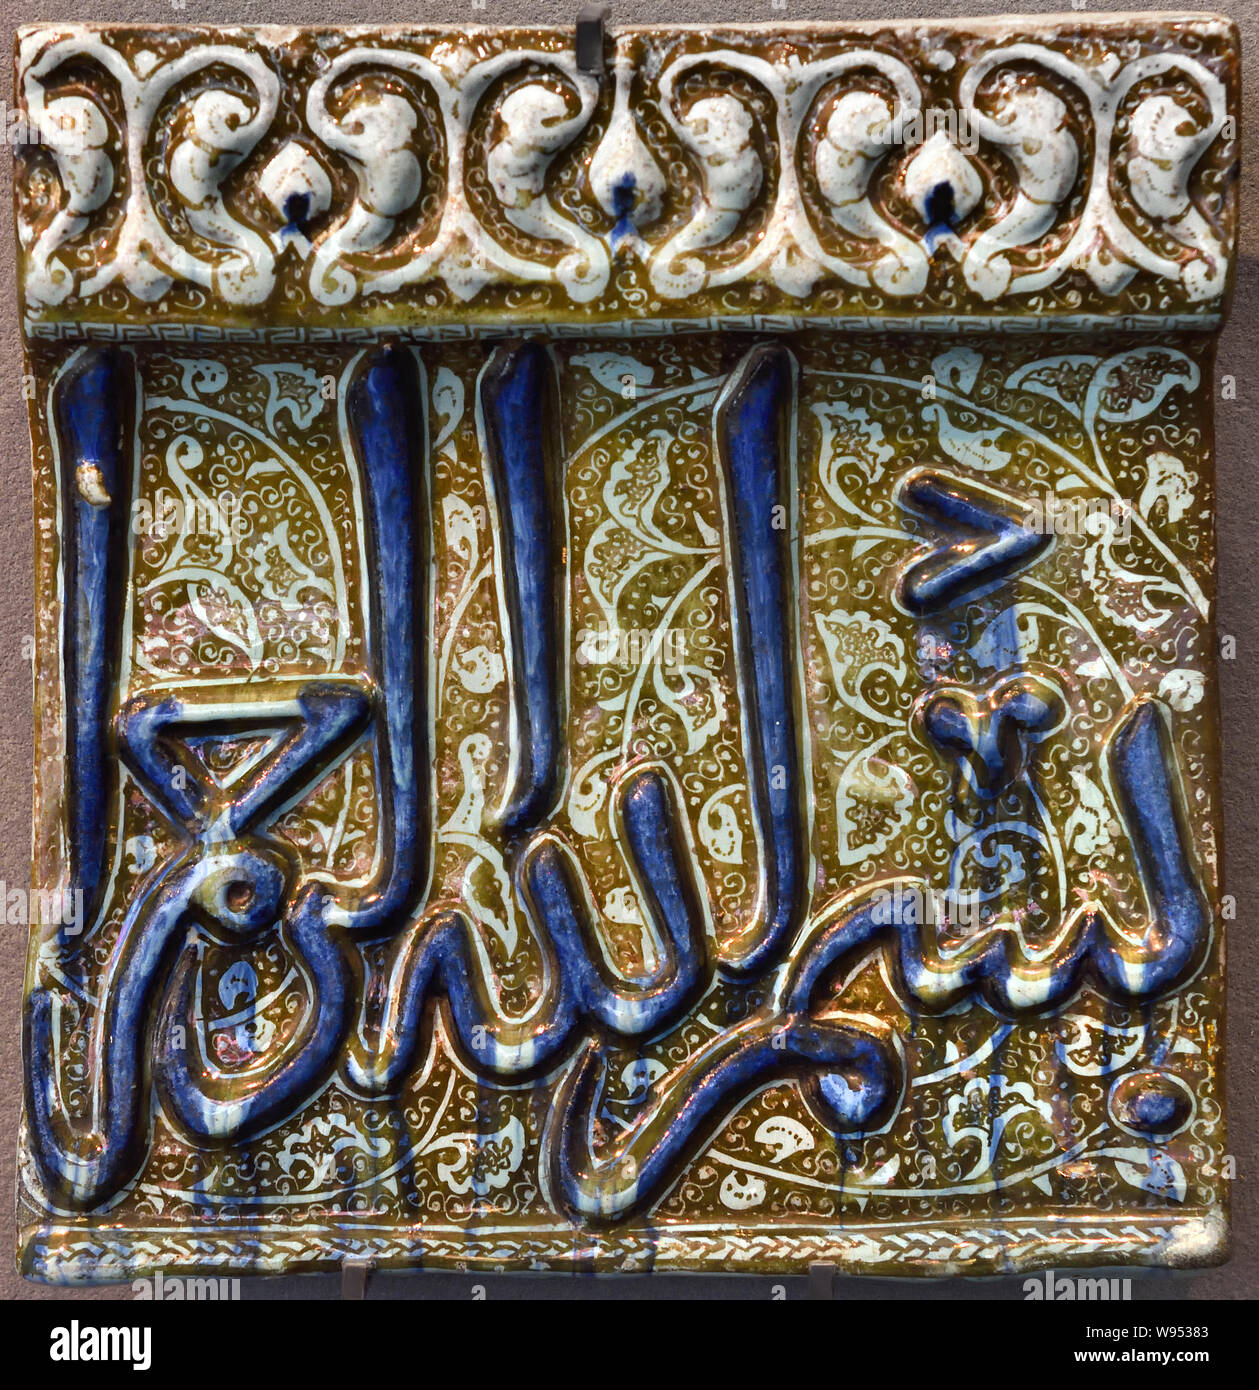 بسم الله الرحمن ا
alamy
Image ID: W95383
www.alamy.com